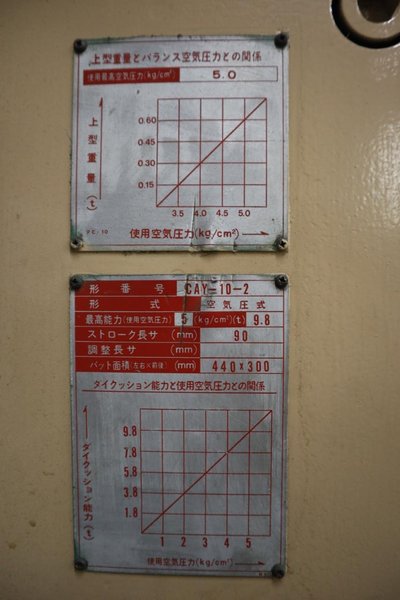 上型重量とバランス空気圧力との関係
使用最高空気圧力(kg/cm²) 5.0
上型重量(t)
0.60
0.45
0.30
0.15
3.5 4.0 4.5 5.0
使用空気圧力(kg/cm²)
形番号 CAY-10-2
形式 空気圧式
最高能力(使用空気圧力) 5 (kg/cm²)(t) 9.8
ストローク長サ (mm) 90
調整長サ (mm)
パット面積(左右×前後) (mm) 440×300
タイクッション能力と使用空気圧力との関係
タイクッション能力(t)
9.8
7.8
5.8
3.8
1.8
1 2 3 4 5
使用空気圧力(kg/cm²)